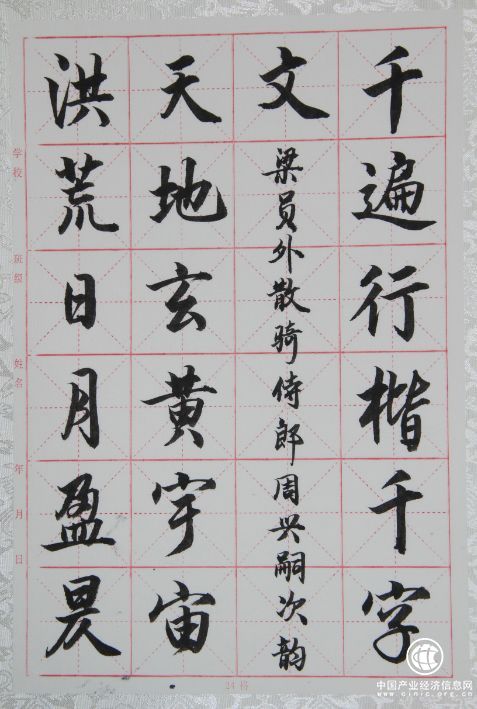 千遍行楷千字
文
梁员外散骑侍郎周兴嗣次韵
天地玄黄宇宙
洪荒日月盈昃
学校 班级 姓名 年 月 日
24格
中国产业经济信息网
www.cinic.org.cn